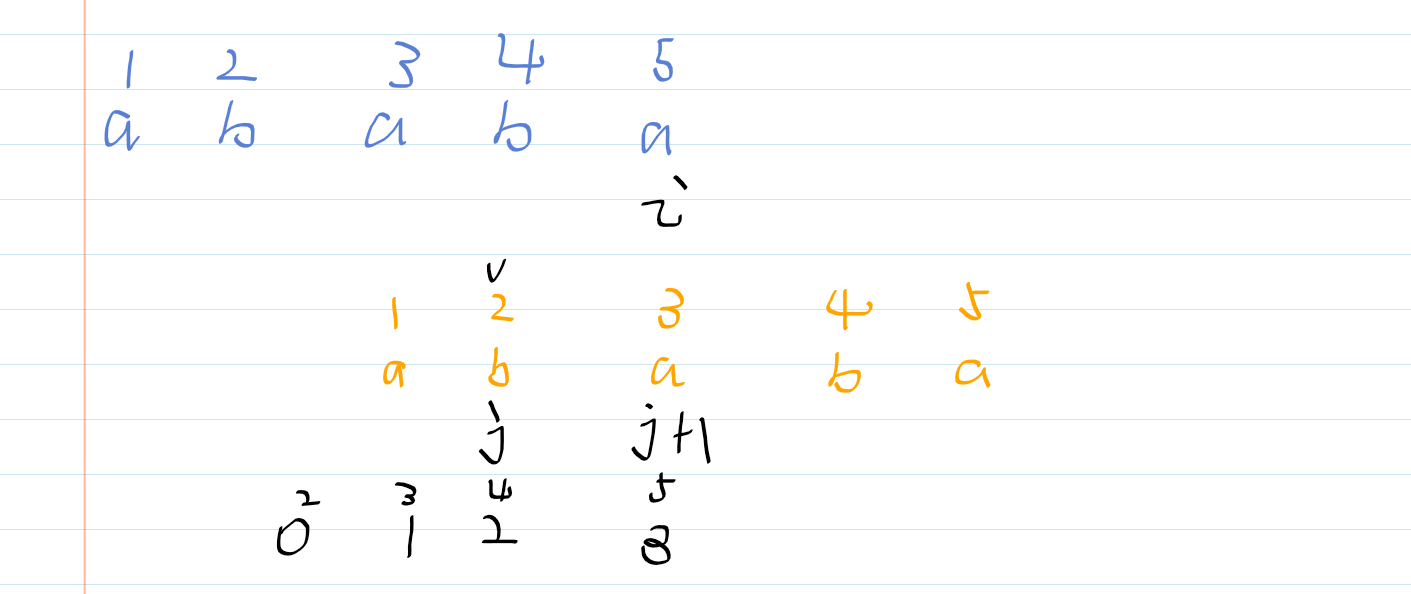 1 2 3 4 5
a b a b a
i
v
1 2 3 4 5
a b a b a
j j+1
2 3 4 5
0 1 2 3